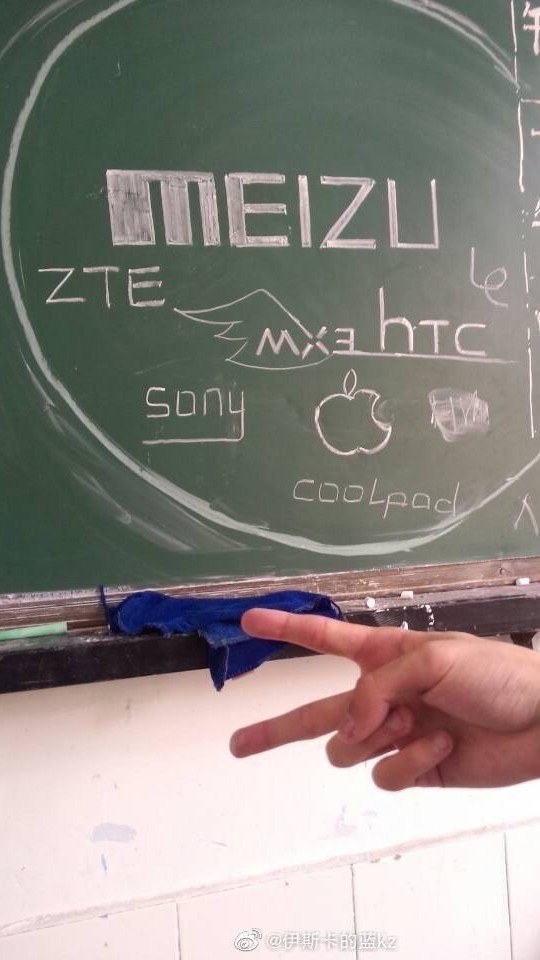 MEIZU
ZTE
MX3 hTC
sony
coolpad
@伊斯卡的蓝kz